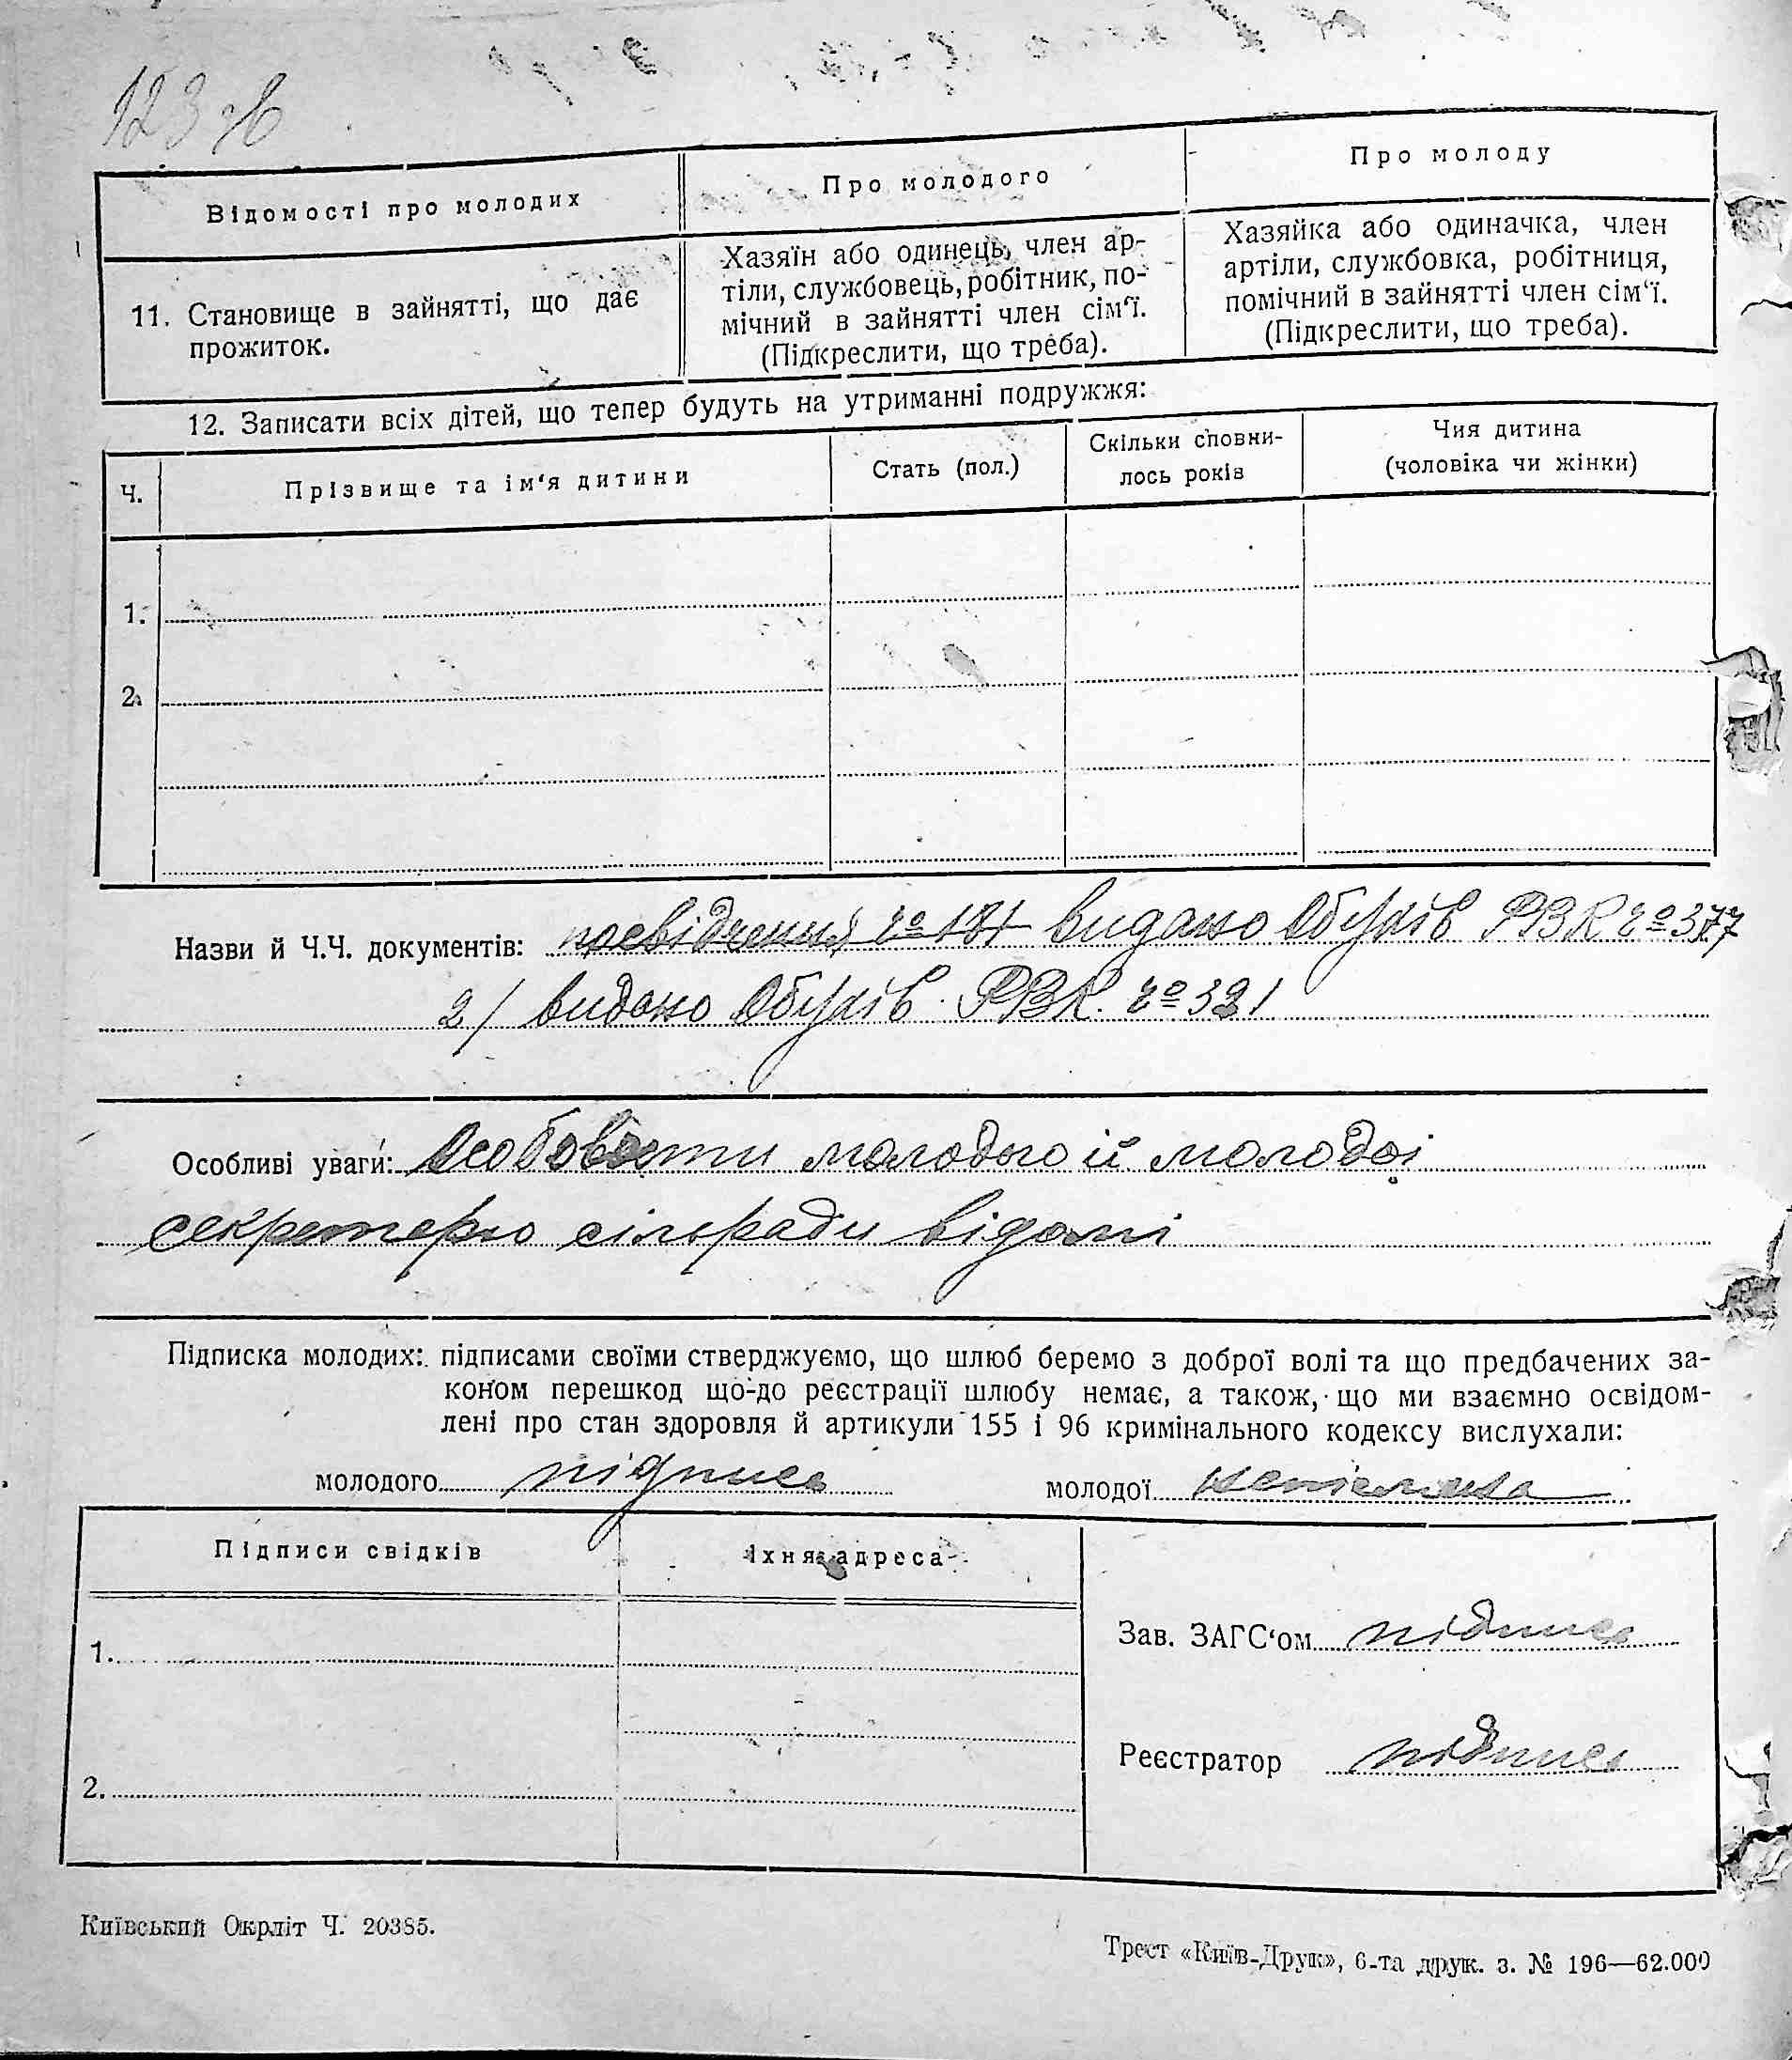 123 зв
Відомості про молодих
Про молодого
Про молоду
11. Становище в зайнятті, що дає
прожиток.
Хазяїн або одинець, член ар-
тіли, службовець, робітник, по-
мічний в зайнятті член сім‘ї.
(Підкреслити, що треба).
Хазяйка або одиначка, член
артіли, службовка, робітниця,
помічний в зайнятті член сім‘ї.
(Підкреслити, що треба).
12. Записати всіх дітей, що тепер будуть на утриманні подружжя:
Ч.
Прізвище та ім‘я дитини
Стать (пол.)
Скільки сповни-
лось років
Чия дитина
(чоловіка чи жінки)
1.
2.
Назви й Ч.Ч. документів: посвідчення № 181 видано Обухів РВК № 377
2/ видано Обухів. РВК. № 321
Особливі уваги: Особовости молодого й молодої
секретерю сільради відомі
Підписка молодих: підписами своїми стверджуємо, що шлюб беремо з доброї волі та що предбачених за-
коном перешкод що-до реєстрації шлюбу немає, а також, що ми взаємно освідом-
лені про стан здоровля й артикули 155 і 96 кримінального кодексу вислухали:
молодого підпись молодої неписмена
Підписи свідків
Їхня адреса
1.
2.
Зав. ЗАГС‘ом підпись
Реєстратор підпись
Київський Окрліт Ч. 20385.
Трест «Київ-Друк», 6-та друк. з. № 196—62.000